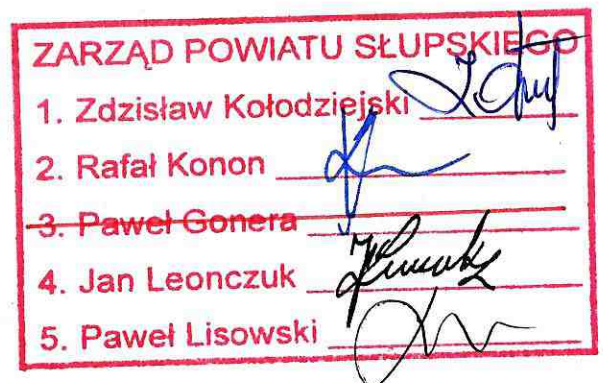 ZARZĄD POWIATU SŁUPSKIEGO
1. Zdzisław Kołodziejski
2. Rafał Konon
3. Paweł Gonera
4. Jan Leonczuk
5. Paweł Lisowski